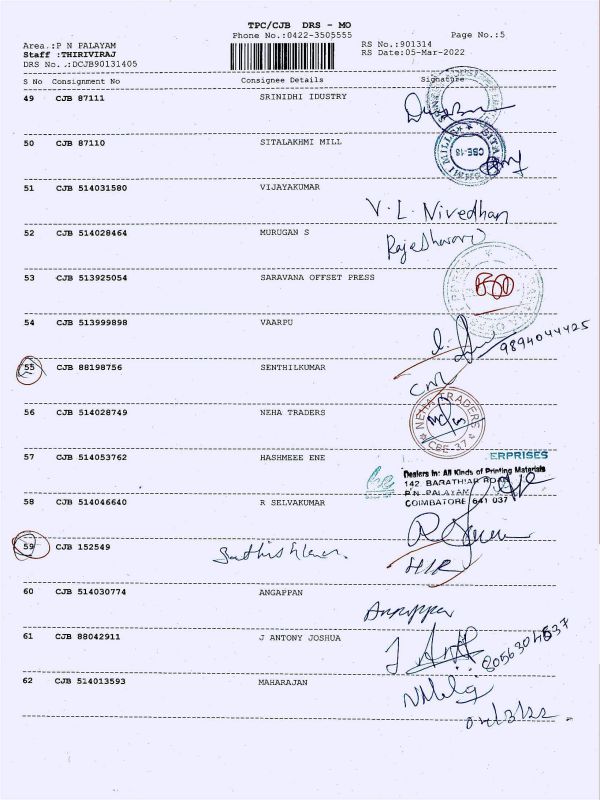 TPC/CJB DRS - MO
Phone No.:0422-3505555 Page No.:5
Area.:P N PALAYAM RS No.:901314
Staff :THIRIVIRAJ RS Date:05-Mar-2022
DRS No..:DCJB90131405
S No Consignment No Consignee Details Signature
49 CJB 87111 SRINIDHI IDUSTRY
50 CJB 87110 SITALAKHMI MILL
CBE-18
51 CJB 514031580 VIJAYAKUMAR
V. L. Nivedhan
52 CJB 514028464 MURUGAN S
53 CJB 513925054 SARAVANA OFFSET PRESS
54 CJB 513999898 VAARPU
9894044425
55 CJB 88198756 SENTHILKUMAR
56 CJB 514028749 NEHA TRADERS
NEHA TRADERS
CBE-37
57 CJB 514053762 HASHMEEE ENE
ERPRISES
Dealers In: All Kinds of Printing Materials
142 BARATHIAR ROAD
P.N. PALAYAM
COIMBATORE 641 037
58 CJB 514046640 R SELVAKUMAR
59 CJB 152549
60 CJB 514030774 ANGAPPAN
61 CJB 88042911 J ANTONY JOSHUA
62 CJB 514013593 MAHARAJAN